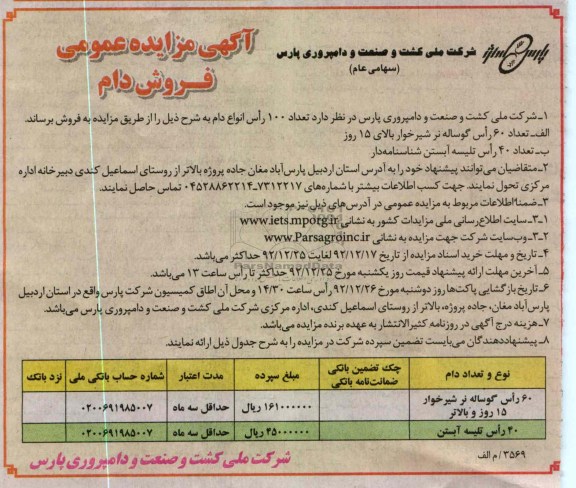 آگهی مزایده عمومی
فروش دام
پارس
شرکت ملی کشت و صنعت و دامپروری پارس
(سهامی عام)
۱ـ شرکت ملی کشت و صنعت و دامپروری پارس در نظر دارد تعداد ۱۰۰ رأس انواع دام به شرح ذیل را از طریق مزایده به فروش برساند.
الف ـ تعداد ۶۰ رأس گوساله نر شیرخوار بالای ۱۵ روز
ب ـ تعداد ۴۰ رأس تلیسه آبستن شناسنامه‌دار
۲ـ متقاضیان می‌توانند پیشنهاد خود را به آدرس استان اردبیل پارس‌آباد مغان جاده پروژه بالاتر از روستای اسماعیل کندی دبیرخانه اداره
مرکزی تحویل نمایند. جهت کسب اطلاعات بیشتر با شماره‌های ۷۳۱۲۲۱۷-۰۴۵۲۸۸۶۲۲۱۴ تماس حاصل نمایند.
۳ـ ضمناً اطلاعات مربوط به مزایده عمومی در آدرس‌های ذیل نیز موجود است.
۳ـ۱ـ سایت اطلاع‌رسانی ملی مزایدات کشور به نشانی www.iets.mporg.ir
۳ـ۲ـ وب‌سایت شرکت جهت مزایده به نشانی www.Parsagroinc.ir
۴ـ تاریخ و مهلت خرید اسناد مزایده از تاریخ ۹۲/۱۲/۱۷ لغایت ۹۲/۱۲/۲۵ حداکثر می‌باشد.
۵ـ آخرین مهلت ارائه پیشنهاد قیمت روز یکشنبه مورخ ۹۲/۱۲/۲۵ حداکثر تا رأس ساعت ۱۳ می‌باشد.
۶ـ تاریخ بازگشایی پاکت‌ها روز دوشنبه مورخ ۹۲/۱۲/۲۶ رأس ساعت ۱۴/۳۰ و محل آن اطاق کمیسیون شرکت پارس واقع در استان اردبیل
پارس‌آباد مغان، جاده پروژه، بالاتر از روستای اسماعیل کندی، اداره مرکزی شرکت ملی کشت و صنعت و دامپروری پارس می‌باشد.
۷ـ هزینه درج آگهی در روزنامه کثیرالانتشار به عهده برنده مزایده می‌باشد.
۸ـ پیشنهاددهندگان می‌بایست تضمین سپرده شرکت در مزایده را به شرح جدول ذیل ارائه نمایند.
نوع و تعداد دام چک تضمین بانکی ضمانت‌نامه بانکی مبلغ سپرده مدت اعتبار شماره حساب بانکی ملی نزد بانک
۶۰ رأس گوساله نر شیرخوار
۱۵ روز و بالاتر ۱۶۱۰۰۰۰۰۰ ریال حداقل سه ماه ۰۲۰۰۶۹۱۹۸۵۰۰۷
۴۰ رأس تلیسه آبستن ۴۵۰۰۰۰۰۰ ریال حداقل سه ماه ۰۲۰۰۶۹۱۹۸۵۰۰۷
شرکت ملی کشت و صنعت و دامپروری پارس
۳۵۶۹/ م الف